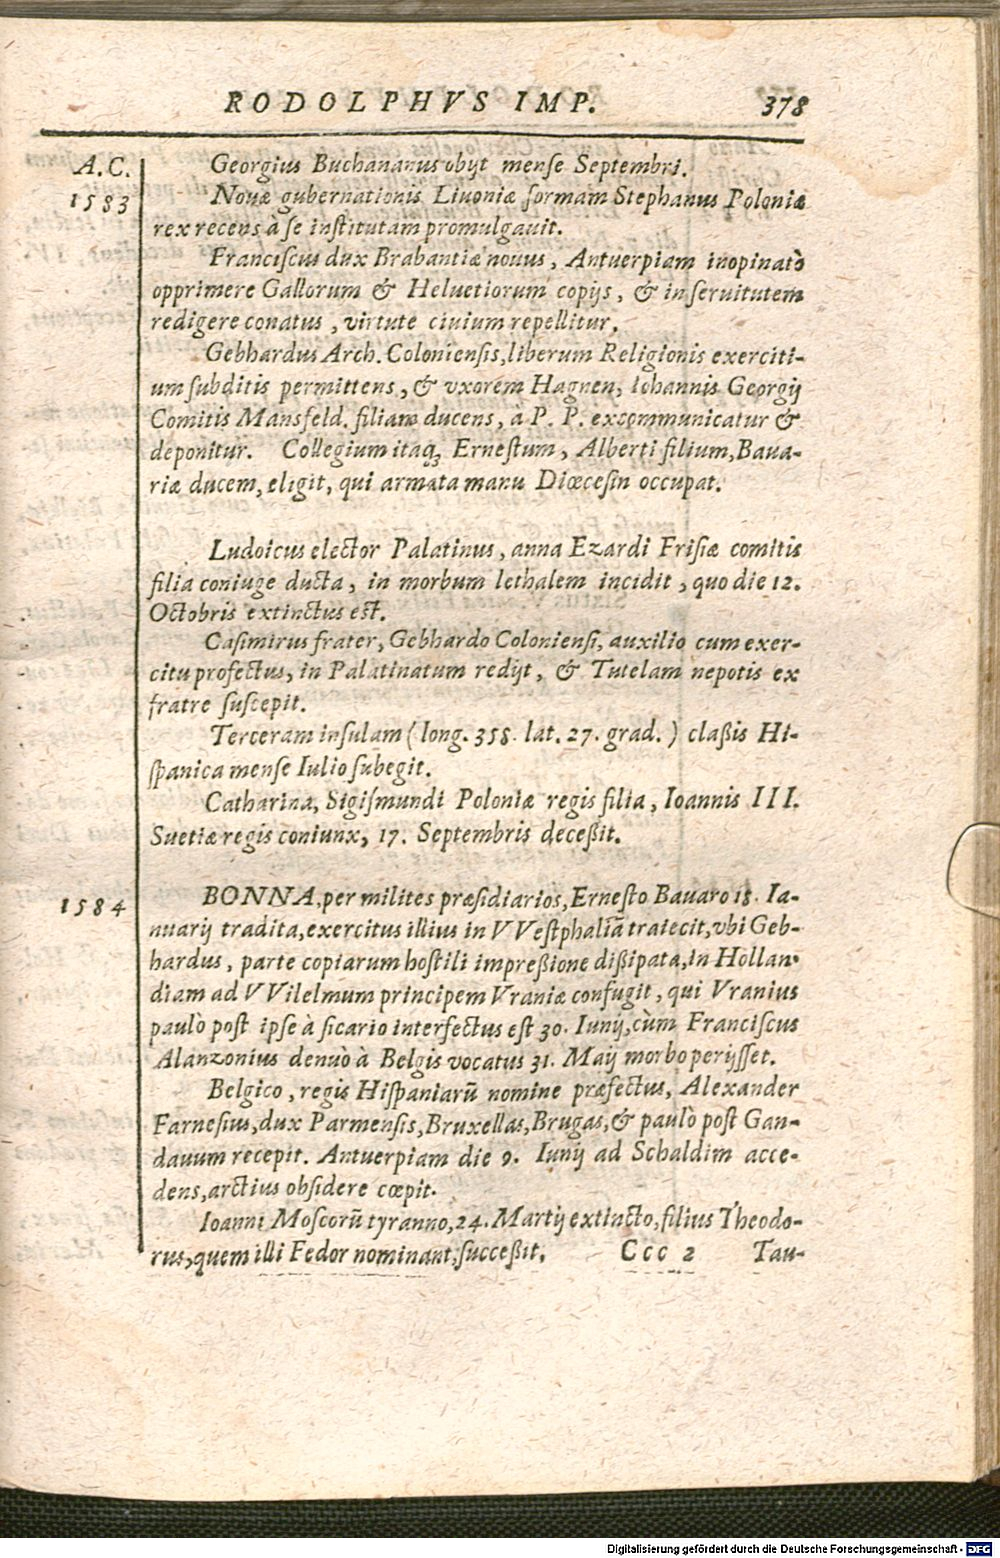 RODOLPHVS IMP. 378
A.C. Georgius Buchananus obijt mense Septembri.
1583 Nouæ gubernationis Liuoniæ formam Stephanus Poloniæ
rex recens à se institutam promulgauit.
Franciscus dux Brabantiæ nouus, Antuerpiam inopinatò
opprimere Gallorum & Heluetiorum copijs, & in seruitutem
redigere conatus, virtute ciuium repellitur.
Gebhardus Arch. Coloniensis, liberum Religionis exerciti-
um subditis permittens, & vxorem Hagnen, Iohannis Georgij
Comitis Mansfeld. filiam ducens, à P. P. excommunicatur &
deponitur. Collegium itaq́ꝫ Ernestum, Alberti filium, Baua-
riæ ducem, eligit, qui armata manu Diœcesin occupat.
Ludoicus elector Palatinus, anna Ezardi Frisiæ comitis
filia coniuge ducta, in morbum lethalem incidit, quo die 12.
Octobris extinctus est.
Casimirus frater, Gebhardo Coloniensi, auxilio cum exer-
citu profectus, in Palatinatum redijt, & Tutelam nepotis ex
fratre suscepit.
Terceram insulam (long. 358. lat. 27. grad.) claßis Hi-
spanica mense Iulio subegit.
Catharina, Sigismundi Poloniæ regis filia, Ioannis III.
Suetiæ regis coniunx, 17. Septembris deceßit.
1584 BONNA, per milites præsidiarios, Ernesto Bauaro 18. Ia-
nuarij tradita, exercitus illius in VVestphaliā traiecit, vbi Geb-
hardus, parte copiarum hostili impreßione dißipata, in Hollan-
diam ad VVilelmum principem Vraniæ confugit, qui Vranius
paulò post ipse à sicario interfectus est 30. Iunij, cùm Franciscus
Alanzonius denuò à Belgis vocatus 31. Maij morbo perijsset.
Belgico, regis Hispaniarū nomine præfectus, Alexander
Farnesius, dux Parmensis, Bruxellas, Brugas, & paulò post Gan-
dauum recepit. Antuerpiam die 9. Iunij ad Schaldim acce-
dens, arctius obsidere cœpit.
Ioanni Moscorū tyranno, 24. Martij extincto, filius Theodo-
rus, quem illi Fedor nominant, succeßit. Ccc 2 Tau-
Digitalisierung gefördert durch die Deutsche Forschungsgemeinschaft - DFG